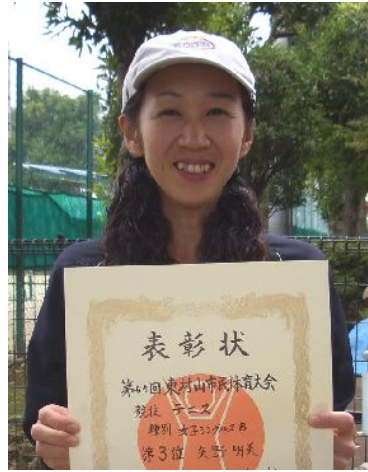 表彰状
第45回東村山市民体育大会
競技 テニス
種別 女子シングルスB
第3位 矢野明美